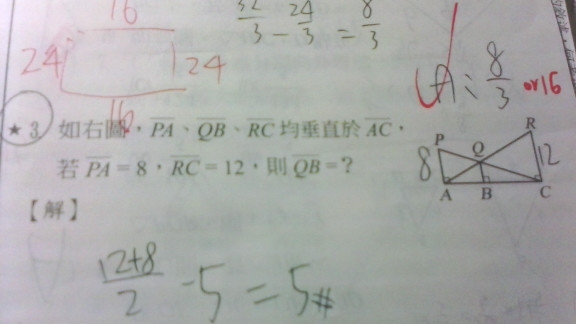 16
32/3 - 24/3 = 8/3
24 24
16
A: 8/3 or 16
★ 3. 如右圖，PA、QB、RC 均垂直於 AC，
若 PA = 8，RC = 12，則 QB = ?
P Q R
8 12
A B C
【解】
12+8/2 - 5 = 5#